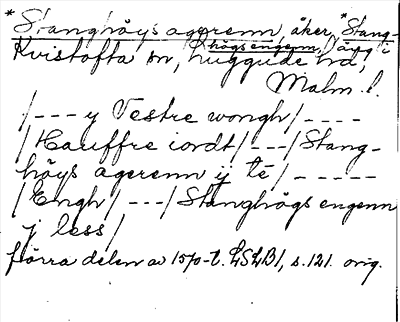 * Stanghöys agerenn, åker, * Stang-
högs engenn, äng i
Kvistofta sn, Luggude hd,
Malm. l.
/--- y Vestre wongh/----
/Hauffre iordt/---/Stang-
höys agerenn ij té/-----
/Engh/---/Stanghögs engenn
j less/
förra delen av 1570-t. LSLB1, s. 121. orig.